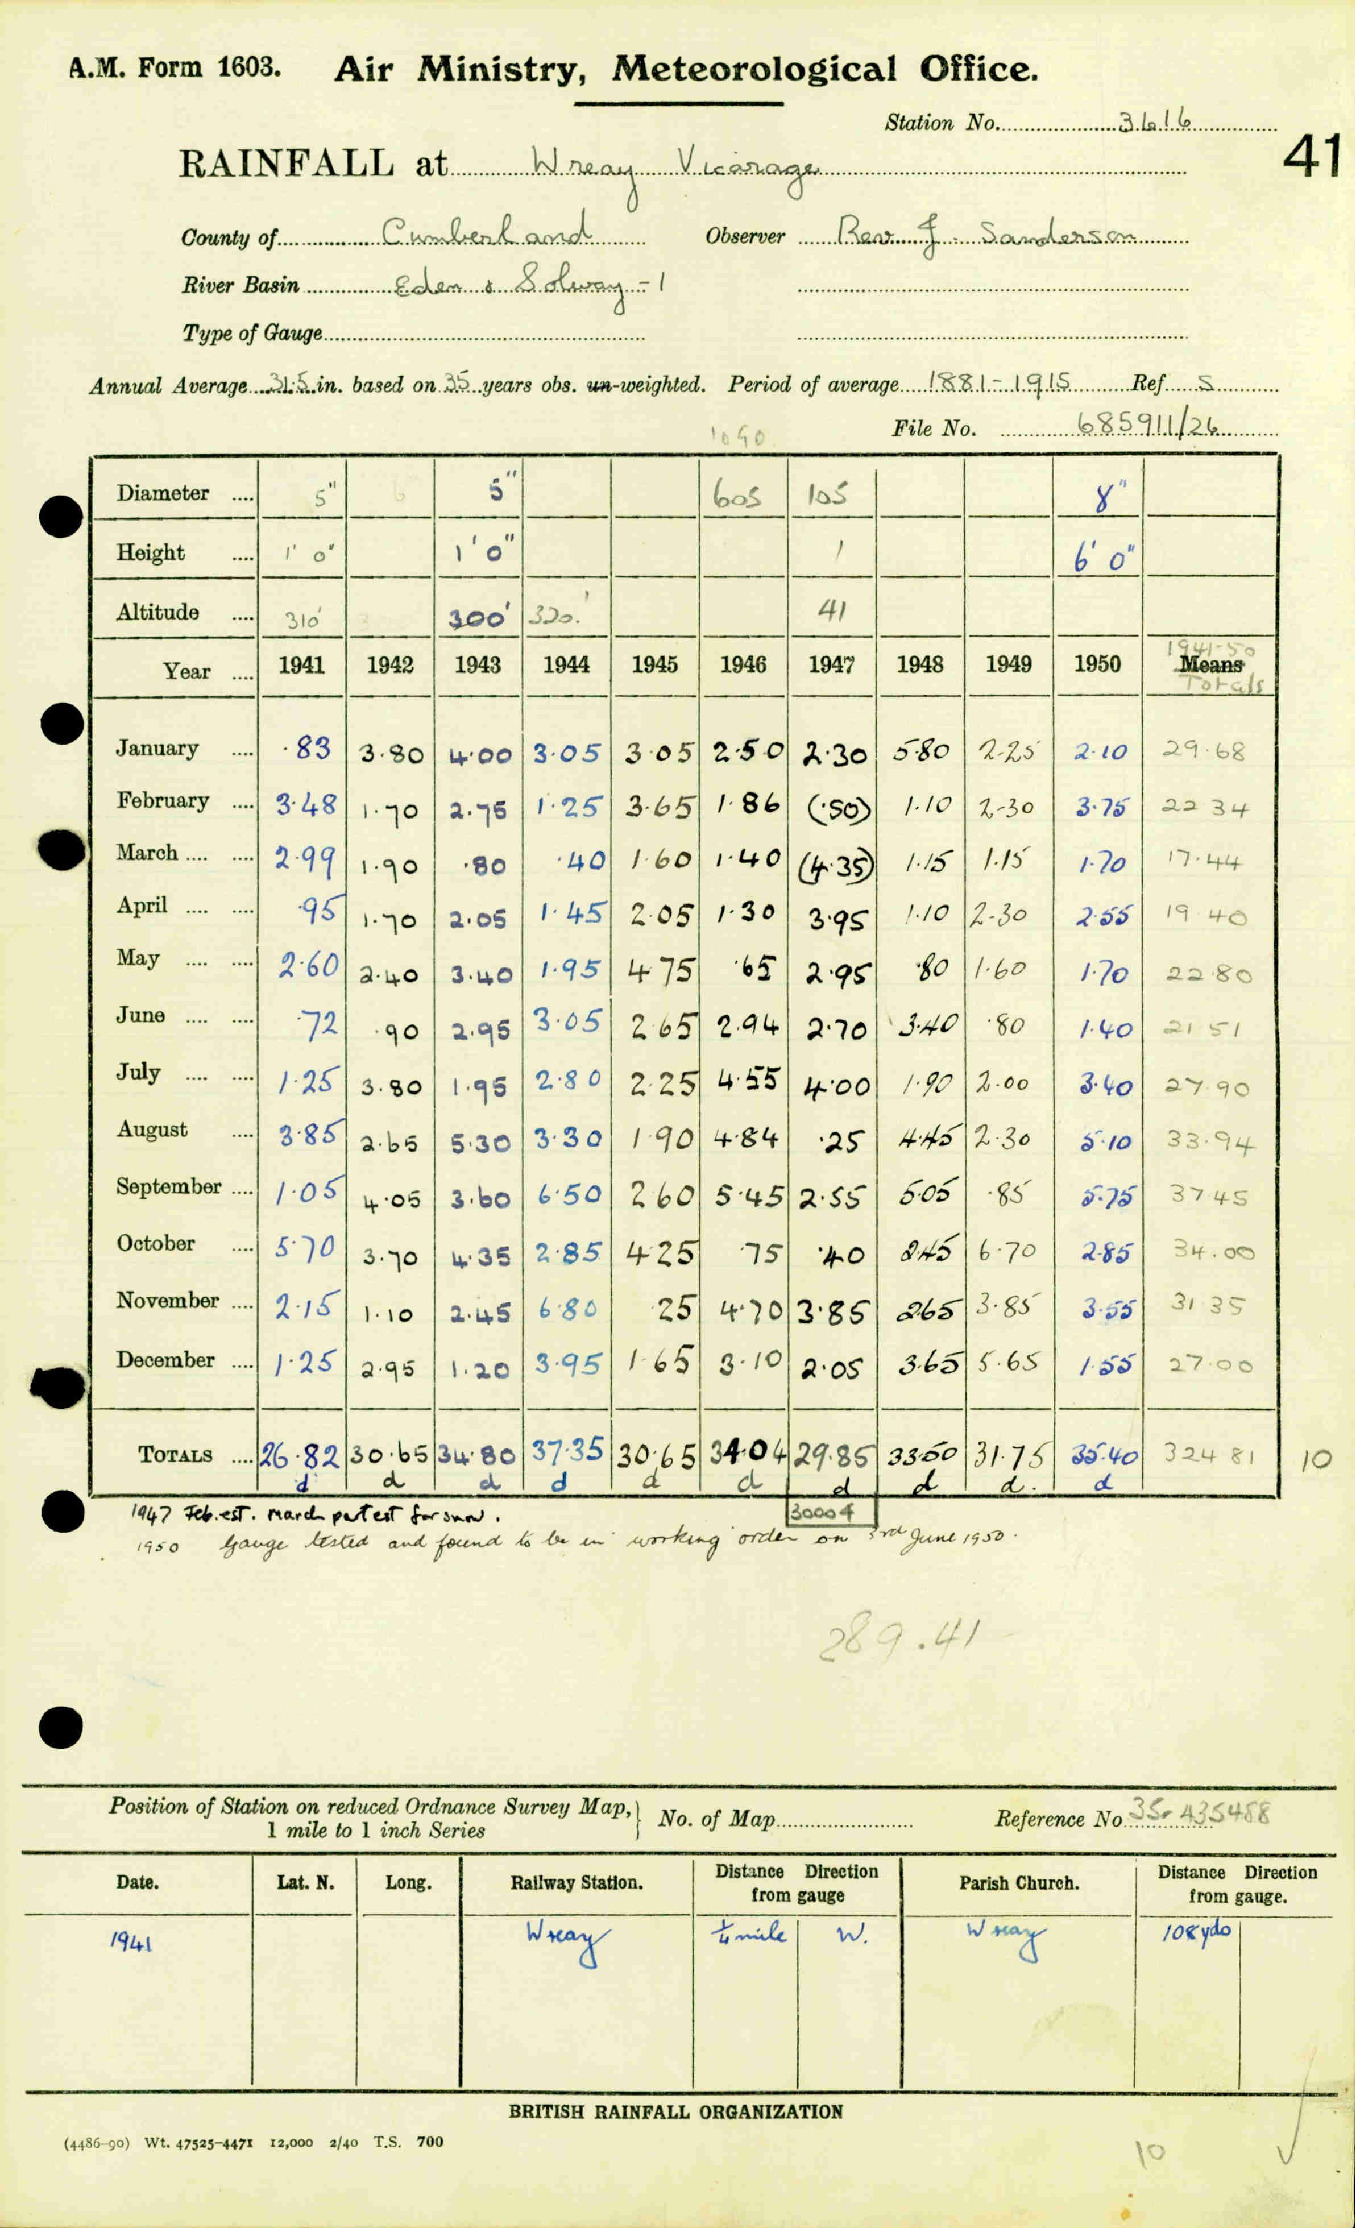 A.M. Form 1603. Air Ministry, Meteorological Office.
Station No. 3616
41
RAINFALL at Wreay Vicarage
County of Cumberland Observer Rev J. Sanderson
River Basin Eden & Solway - 1
Type of Gauge
Annual Average 31.5 in. based on 35 years obs. un-weighted. Period of average 1881-1915 Ref S
File No. 685911/26
Diameter .... 5" 5" 605 105 8"
Height .... 1' 0" 1' 0" 1 6' 0"
Altitude .... 310' 300' 320' 41
1941-50
Year .... 1941 1942 1943 1944 1945 1946 1947 1948 1949 1950 Means
Totals
January .... .83 3.80 4.00 3.05 3.05 2.50 2.30 5.80 2.25 2.10 29.68
February .... 3.48 1.70 2.75 1.25 3.65 1.86 (.50) 1.10 2.30 3.75 22 34
March .... .... 2.99 1.90 .80 .40 1.60 1.40 (4.35) 1.15 1.15 1.70 17.44
April .... .... .95 1.70 2.05 1.45 2.05 1.30 3.95 1.10 2.30 2.55 19 40
May .... .... 2.60 2.40 3.40 1.95 4 75 .65 2.95 .80 1.60 1.70 22 80
June .... .... .72 .90 2.95 3.05 2 65 2.94 2.70 3.40 .80 1.40 21 51
July .... .... 1.25 3.80 1.95 2.80 2.25 4.55 4.00 1.90 2.00 3.40 27.90
August .... 3.85 2.65 5.30 3.30 1 90 4.84 .25 4.45 2.30 5.10 33.94
September .... 1.05 4.05 3.60 6.50 2 60 5.45 2.55 5.05 .85 5.75 37 45
October .... 5.70 3.70 4.35 2.85 4 25 .75 .40 2.45 6.70 2.85 34.00
November .... 2.15 1.10 2.45 6.80 25 4.70 3.85 2.65 3.85 3.55 31 35
December .... 1.25 2.95 1.20 3.95 1 65 3.10 2.05 3.65 5.65 1.55 27.00
TOTALS .... 26.82 30.65 34.80 37.35 30.65 34.04 29.85 33.50 31.75 35.40 324 81 10
d d d d d d d d d. d
1947 Feb. est. March part est for snow. 30004
1950 Gauge tested and found to be in working order on 3rd June 1950.
289.41
Position of Station on reduced Ordnance Survey Map, 1 mile to 1 inch Series No. of Map Reference No. 35. 435488
Date. Lat. N. Long. Railway Station. Distance Direction from gauge Parish Church. Distance Direction from gauge.
1941 Wreay ¼ mile W. Wreay 108 yds
BRITISH RAINFALL ORGANIZATION
(4486-90) Wt. 47525-4471 12,000 2/40 T.S. 700
10